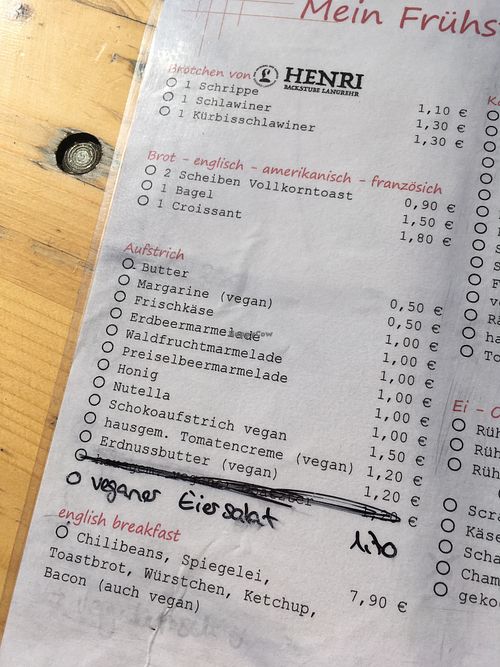 Mein Frühs
Brötchen von HENRI
BACKSTUBE LANGREHR
1 Schrippe 1,10 €
1 Schlawiner 1,30 €
1 Kürbisschlawiner 1,30 €
Brot - englisch - amerikanisch - französich
2 Scheiben Vollkorntoast 0,90 €
1 Bagel 1,50 €
1 Croissant 1,80 €
Aufstrich
Butter 0,50 €
Margarine (vegan) 0,50 €
Frischkäse 1,00 €
Erdbeermarmelade 1,00 €
Waldfruchtmarmelade 1,00 €
Preiselbeermarmelade 1,00 €
Honig 1,00 €
Nutella 1,00 €
Schokoaufstrich vegan 1,50 €
hausgem. Tomatencreme (vegan) 1,20 €
Erdnussbutter (vegan) 1,20 €
€
veganer Eiersalat 1,70
english breakfast
Chilibeans, Spiegelei,
Toastbrot, Würstchen, Ketchup, 7,90 €
Bacon (auch vegan)
Ei - O
Rüh
Rüh
Rüh
Scra
Käse
Scha
Cham
geko